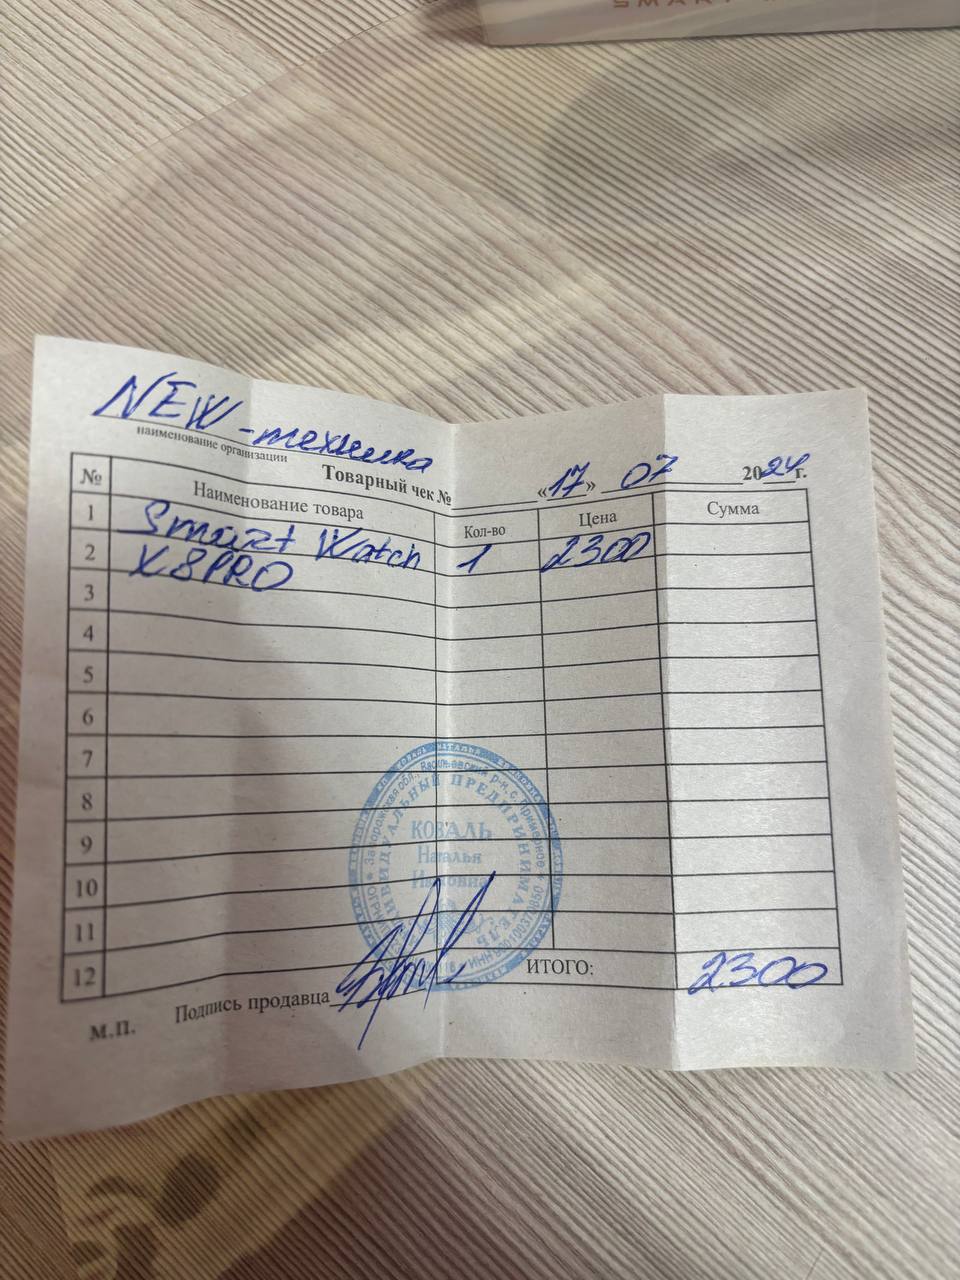 SMART
NEW-техника
наименование организации
Товарный чек № «17» 07 2024 г.
№ Наименование товара Кол-во Цена Сумма
1 Smart Watch 1 2300
2 X8PRO
3
4
5
6
7
8
9
10
11
12
ИТОГО: 2300
Подпись продавца
М.П.
Запорожская обл., Васильевский р-н, с. Приморское
ИНДИВИДУАЛЬНЫЙ ПРЕДПРИНИМАТЕЛЬ
КОВАЛЬ
Наталья